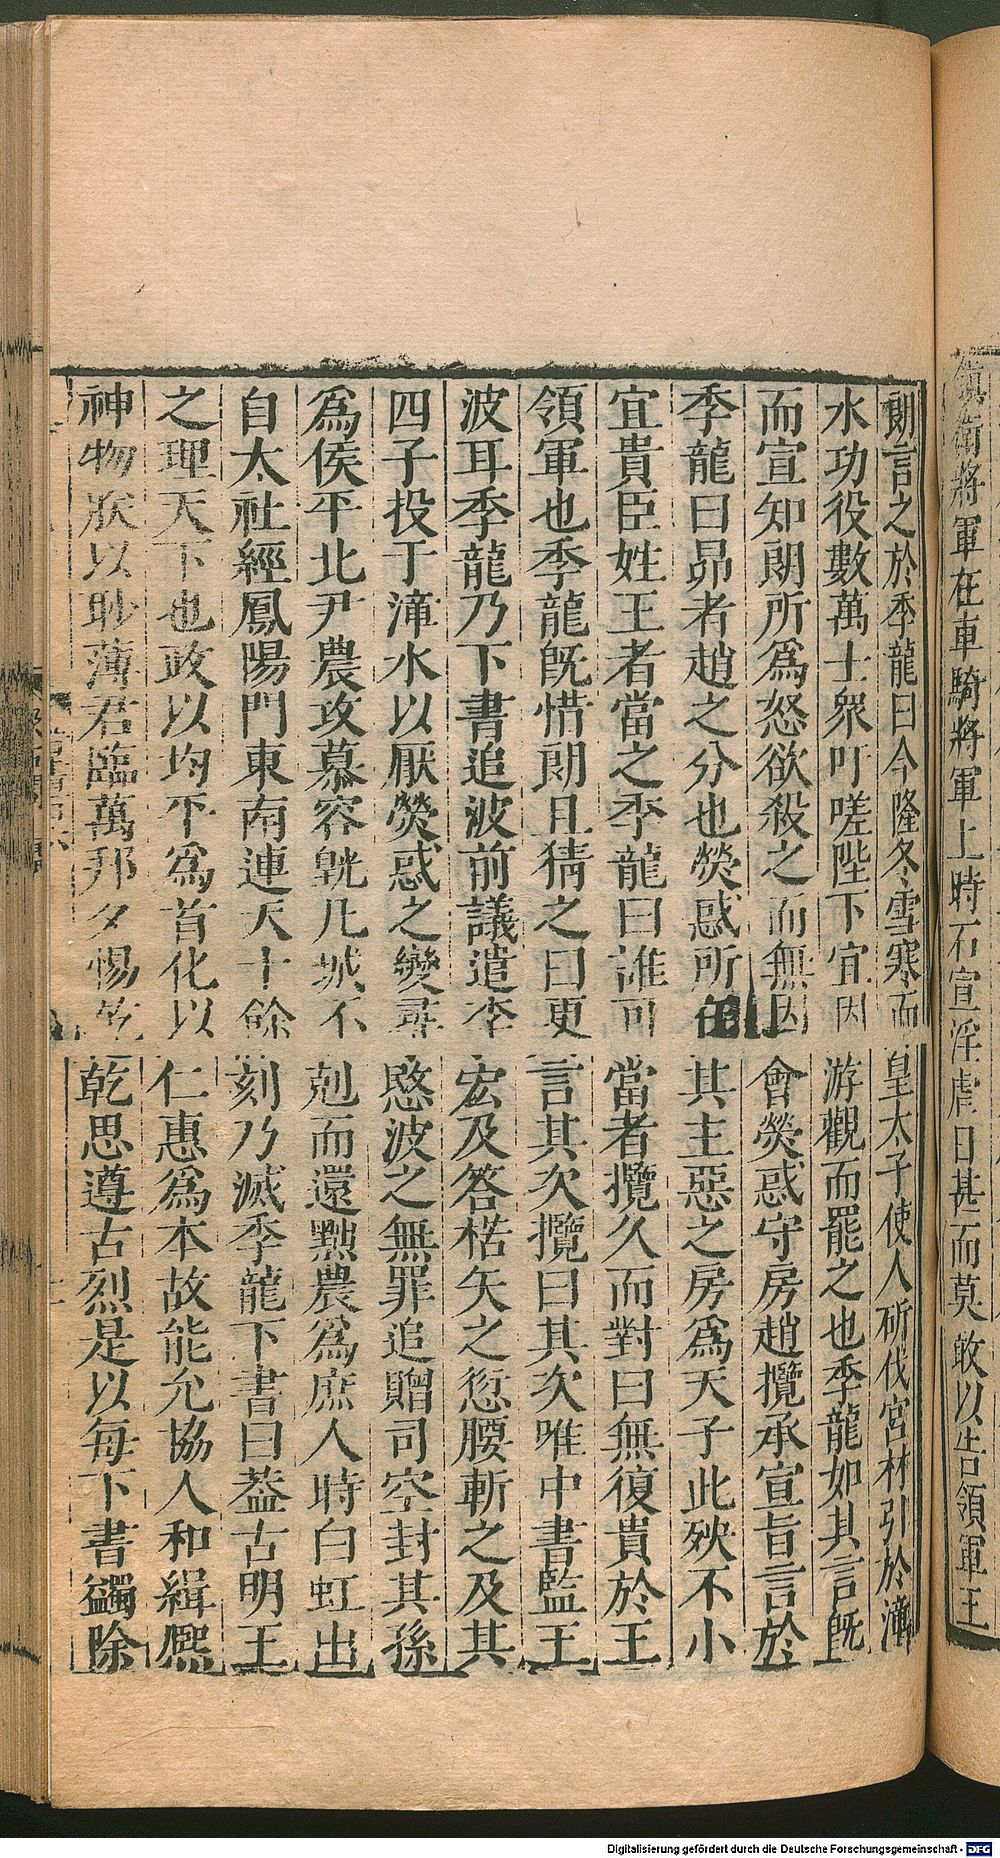 鎮衛將軍在車騎將軍上時石宣淫虐日甚而莫敢以告領軍王
朗言之於季龍曰今隆冬雪寒而皇太子使人斫伐宮材引於漳
水功役數萬士衆吁嗟陛下宜因游觀而罷之也季龍如其言旣
而宣知朗所爲怒欲殺之而無因會熒惑守房趙攬承宣旨言於
季龍曰昴者趙之分也熒惑所在其主惡之房爲天子此殃不小
宜貴臣姓王者當之季龍曰誰可當者攬久而對曰無復貴於王
領軍也季龍旣惜朗且猜之曰更言其次攬曰其次唯中書監王
波耳季龍乃下書追波前議遣李宏及答楛矢之愆腰斬之及其
四子投于漳水以厭熒惑之變尋愍波之無罪追贈司空封其孫
爲侯平北尹農攻慕容皝凡城不剋而還黜農爲庶人時白虹出
自太社經鳳陽門東南連天十餘刻乃滅季龍下書曰蓋古明王
之理天下也政以均平爲首化以仁惠爲本故能允協人和緝熙
神物朕以眇薄君臨萬邦夕惕乾乾思遵古烈是以每下書蠲除
Digitalisierung gefördert durch die Deutsche Forschungsgemeinschaft - DFG